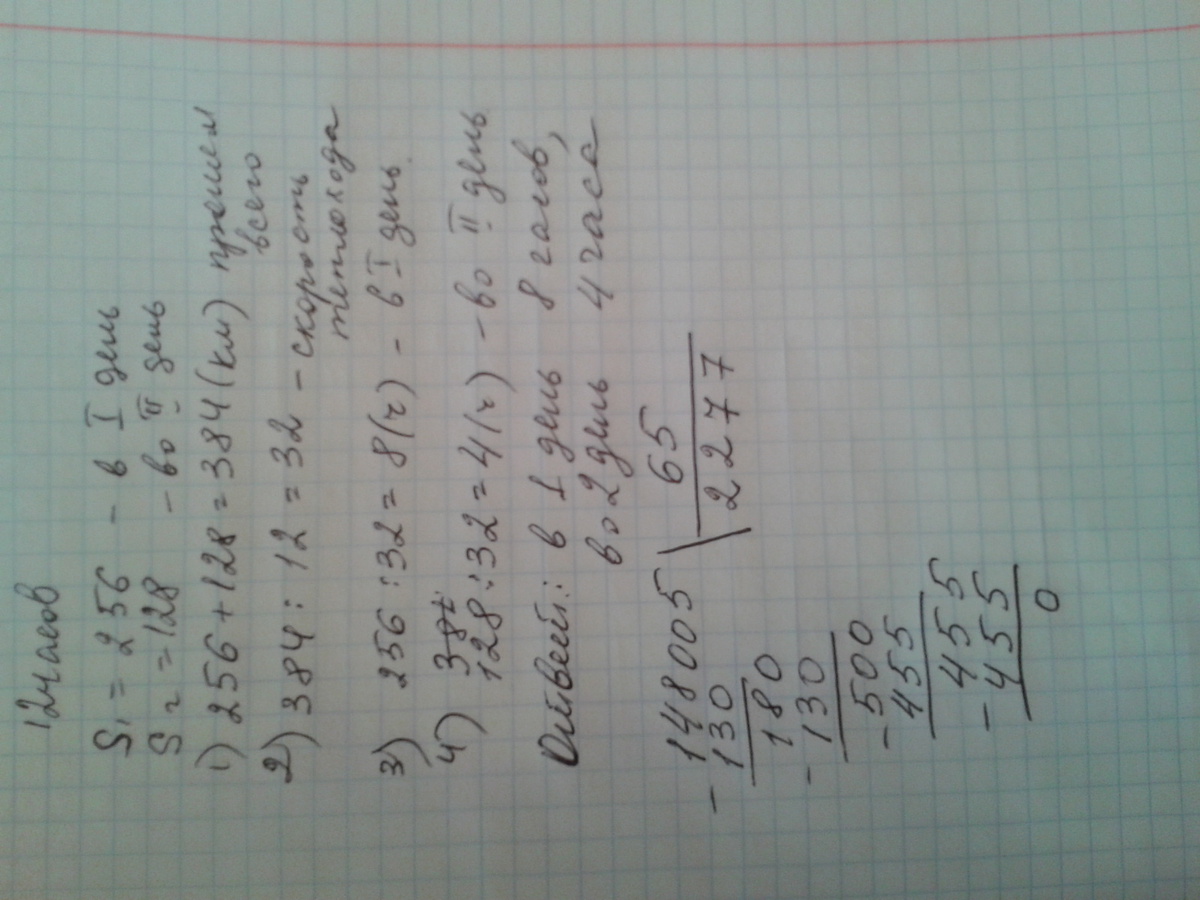 12 часов
S₁ = 256 - в I день
S₂ = 128 - во II день
1) 256 + 128 = 384 (км) прошел
всего
2) 384 : 12 = 32 - скорость
теплохода
3) 256 : 32 = 8 (ч) - в I день.
4) 128 : 32 = 4 (ч) - во II день
Ответ: в 1 день 8 часов,
во 2 день 4 часа
148005 65
- 130 2277
180
- 130
- 500
455
- 455
455
0